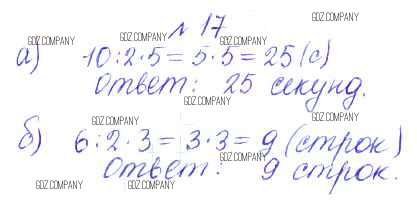 № 17
а) 10:2·5=5·5=25(с)
ответ: 25 секунд.
б) 6:2·3=3·3=9(строк)
ответ: 9 строк.
GDZ.COMPANY
GDZ.COMPANY
GDZ.COMPANY
GDZ.COMPANY
GDZ.COMPANY
GDZ.COMPANY
GDZ.COMPANY
GDZ.COMPANY
GDZ.COMPANY
GDZ.COMPANY
GDZ.COMPANY